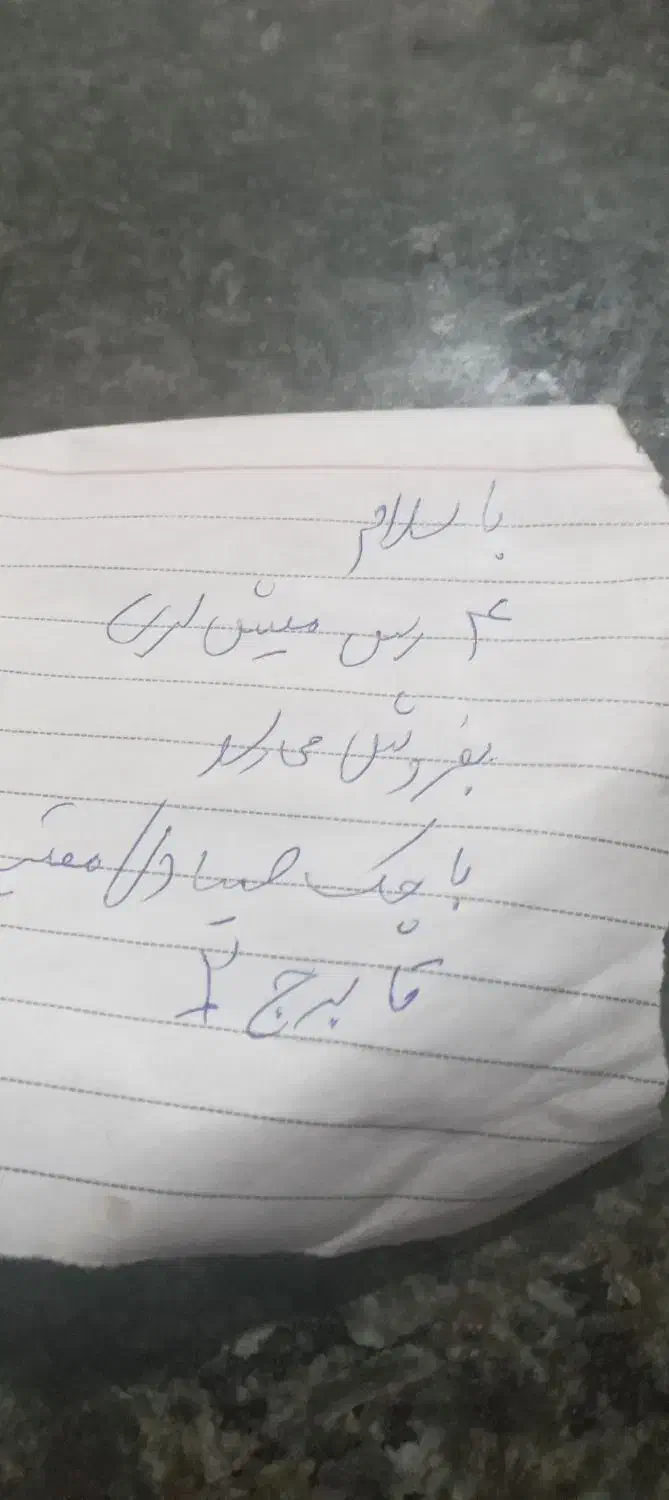 با سلام
۴ رس میش لری
بفروش می رسد
با چک صیادی معتبر
تا برج ۲